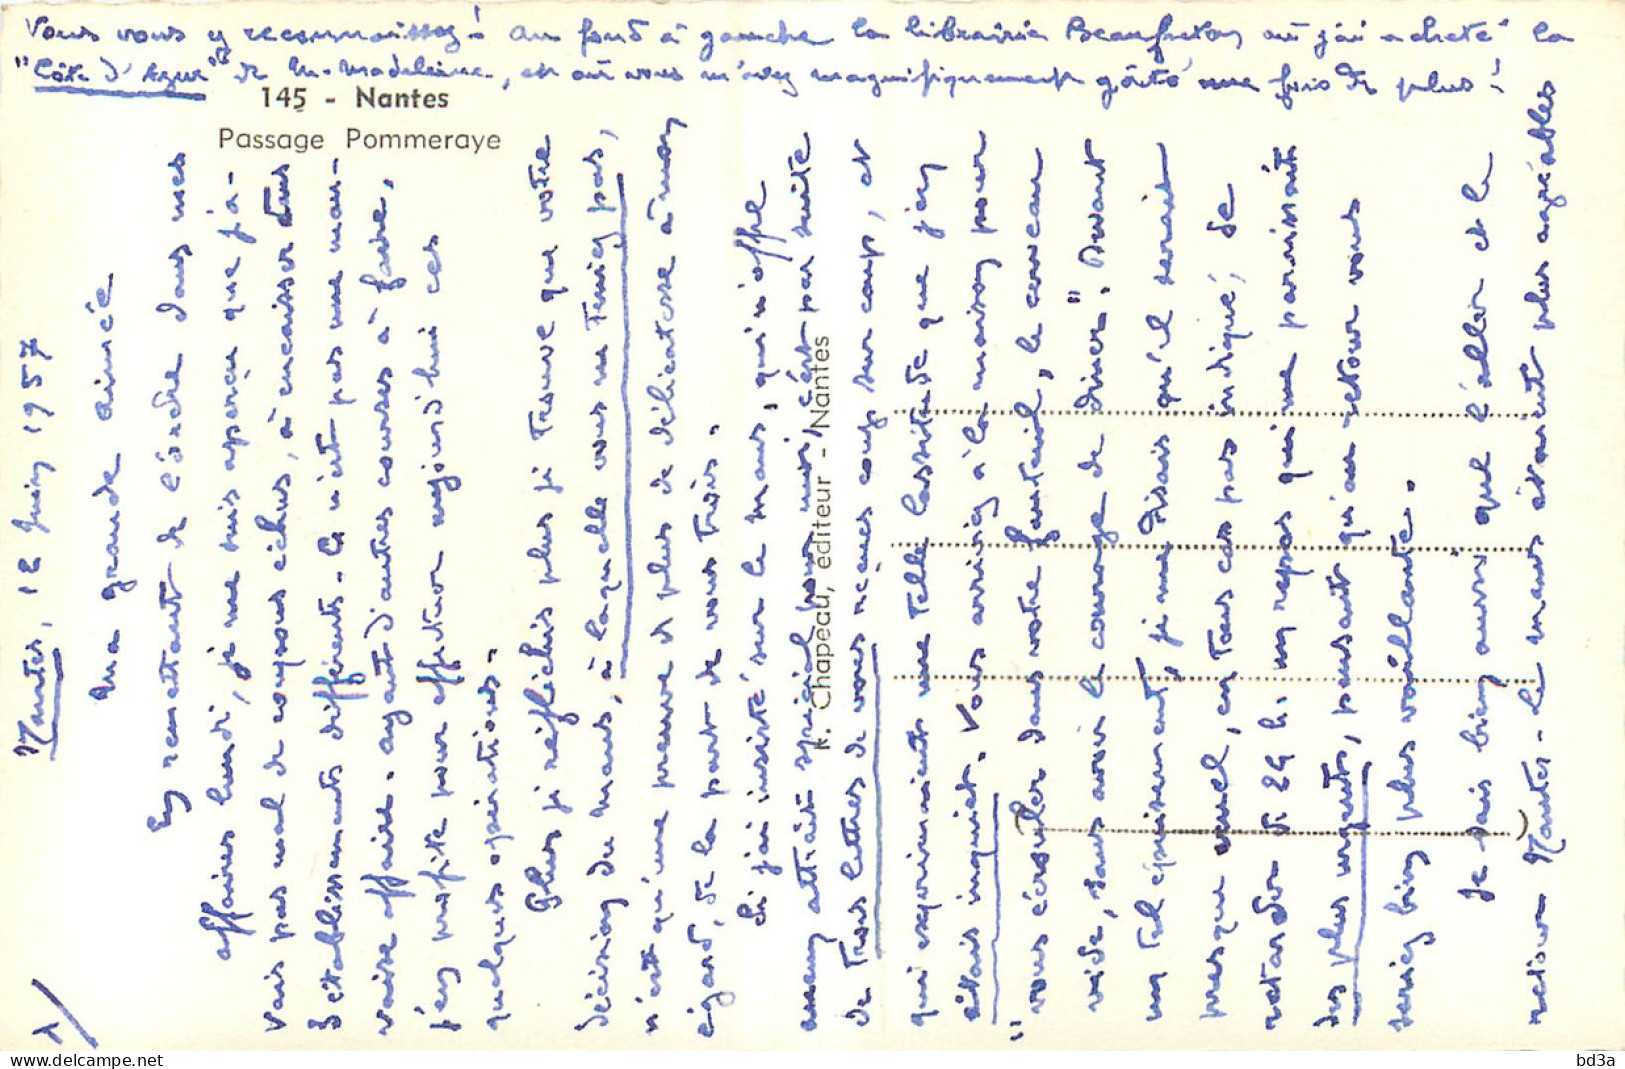 Vous vous y reconnaissez ! au fond à gauche la librairie Beaufreton où j'ai acheté la
"Côte d'Azur" de M. Madeleine, et où vous m'avez magnifiquement gâté une fois de plus !
145 - Nantes
Passage Pommeraye
1/
Nantes, 12 Juin 1957
Ma grande aimée
En remettant de l'ordre dans mes
affaires lundi, je me suis aperçu que j'a-
vais pas mal de coupons échus, à encaisser dans
d'établissements différents. Ce n'est pas une mau-
vaise affaire. ayant d'autres courses à faire,
j'en profite pour effectuer aujourd'hui ces
quelques opérations.
Plus je réfléchis plus je trouve que votre
décision du Mans, à laquelle vous ne teniez pas,
n'est qu'une preuve de plus de délicatesse à mon
égard, de la part de vous trois.
Si j'ai insisté sur le Mans, qui n'offre
aucun attrait spécial pour moi, c'est par suite
de trois lettres de vous reçues coup sur coup, et
qui exprimaient une telle lassitude que j'en
étais inquiet. Vous arriviez à la maison pour
"vous écrouler dans votre fauteuil, le cerveau
vide, sans avoir le courage de dîner". Devant
un tel épuisement, je me disais qu'il serait
presque cruel, en tous cas pas indiqué, de
retarder de 24 h. un repos qui me paraissait
des plus urgents, pensant qu'au retour vous
seriez bien plus vaillante.
Je sais bien aussi que l'aller et le
retour Nantes - Le Mans étaient plus agréables
R. Chapeau, éditeur - Nantes